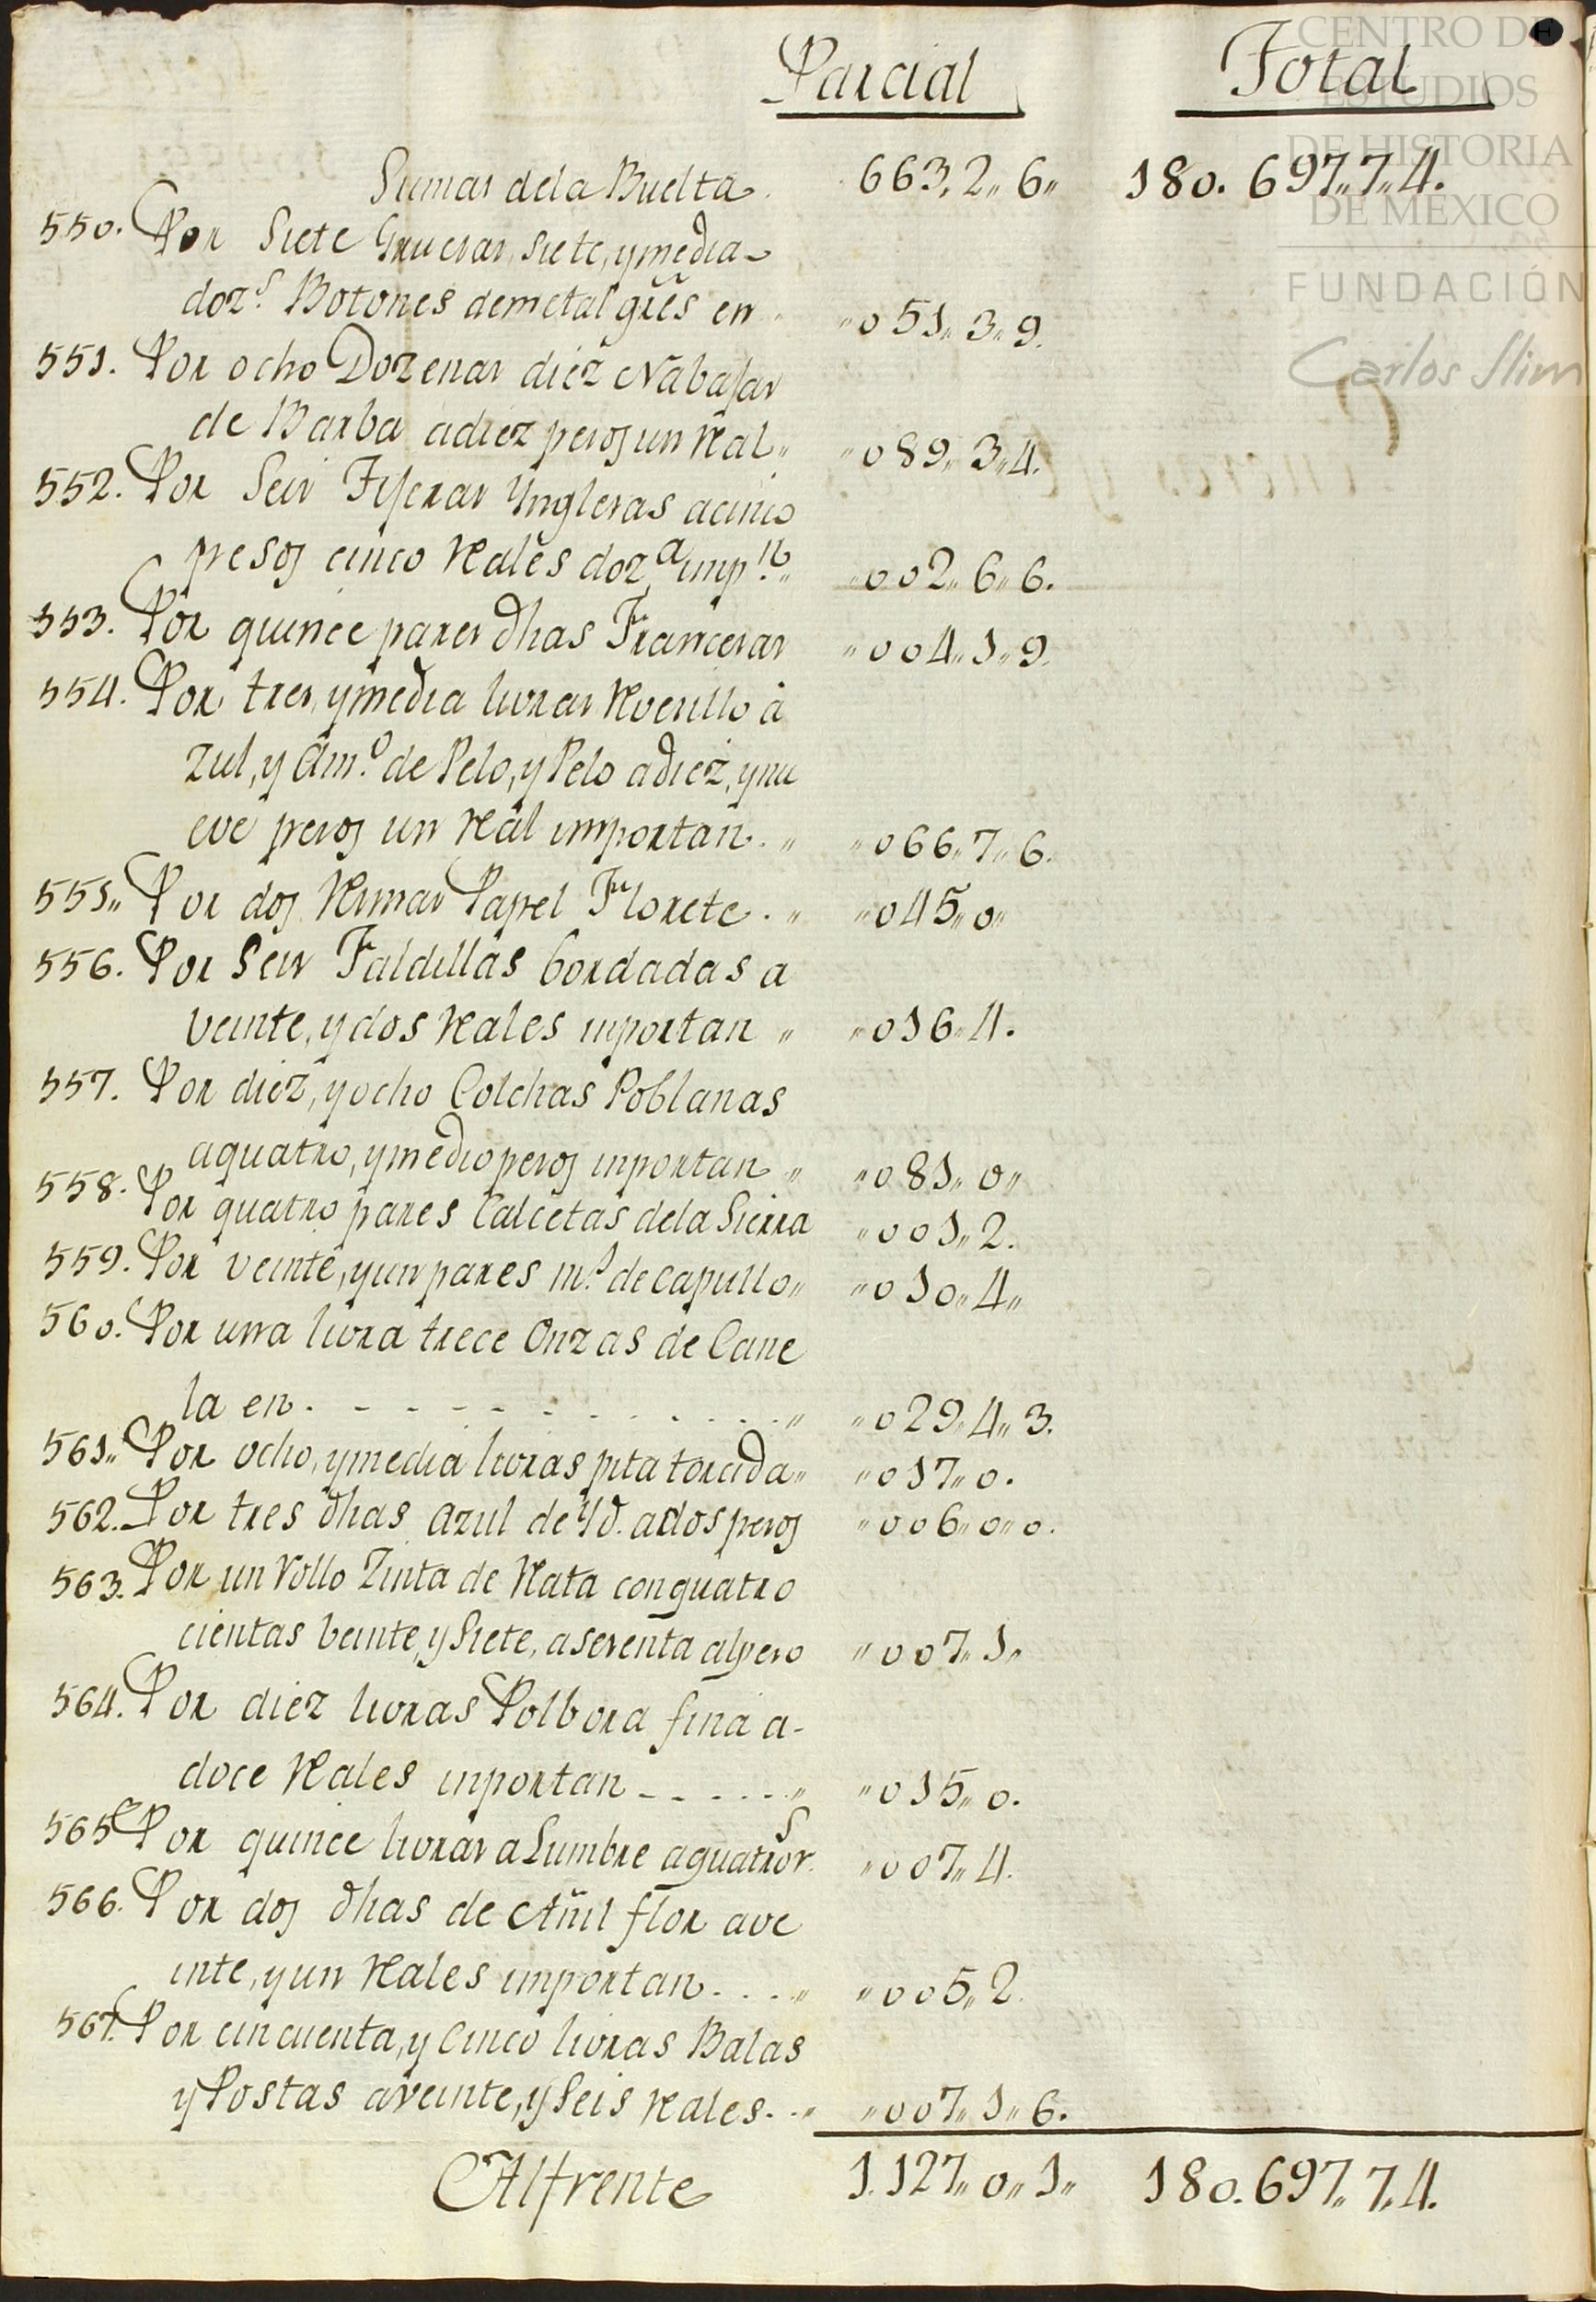 Parcial Total
Sumas dela Buelta 663,,2,,6,, 180.697,,7,,4.
550. Por Siete Gruesas, siete, y media
doz.s Botones demetal grês en ,,051,,3,,9.
551. Por ocho Dozenas diez Nabajas
de Barba adiez pesos un Real,, ,,089,,3,,4.
552. Por Seis Tijeras Ynglesas acinco
pesos cinco Rales doz.a imp.n ,,002,,6,,6.
553. Por quince pares dhas Francesas ,,004,,1,,9.
554. Por tres, y media livras Rosillo à
zul, y Am.o de Pelo, y Pelo adiez, y nu
eve pesos un Real importan. ,, ,,066,,7,,6.
555,, Por dos Resmas Papel Florete . ,, ,,045,,0,,
556. Por Seis Faldillas bordadas a
veinte, y dos Rales inportan ,, ,,016,,4.
557. Por diez, y ocho Colchas Poblanas
aquatro, y medio pesos inportan ,, ,,081,,0,,
558. Por quatro pares Calcetas dela Sierra ,,001,,2.
559. Por veinte, y un pares m.s de capullo,, ,,010,,4,,
560. Por una livra trece Onzas de Cane
la en . - - - - - - - . . . . ,, ,,029,,4,,3.
561,, Por ocho, y media livras pita torcida,, ,,017,,0.
562. Por tres dhas azul de Yd. ados pesos ,,006,,0,,0.
563. Por un Rollo Zinta de Rata conquatro
cientas beinte, y Siete, asesenta alpeso ,,007,,1,,
564. Por diez livras Polbora fina a-
doce Rales inportan - - - . . . ,, ,,015,,0.
565 Por quince livras aLumbre aquatro rs. ,,007,,4.
566. Por dos dhas de Añil flor ave
inte, y un Rales importan. . . ,, ,,005,,2.
567. Por cincuenta, y Cinco livras Balas
y Postas aveinte, y Seis Rales. . ,, ,,007,,1,,6.
Alfrente 1.127,,0,,1,, 180.697,,7,,4.
CENTRO DE
ESTUDIOS
DE HISTORIA
DE MÉXICO
FUNDACIÓN
Carlos Slim